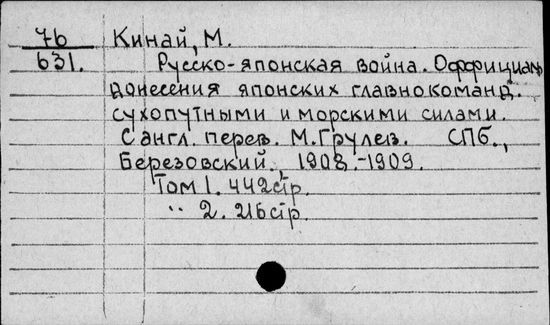 76 Кинай, М.
631. Русско-японская война. Оффициальн.
донесения японских главнокоманд.
сухопутными и морскими силами.
С англ. перев. М. Грулев. СПб.,
Березовский. 1908.-1909.
Том 1. 442 стр.
" 2. 216 стр.